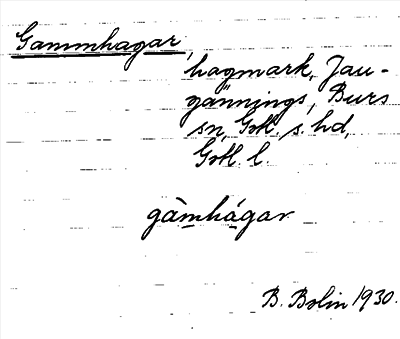 Gammhagar,
hagmark, Jau-
gännings, Burs
sn, Gotl. s. hd,
Gotl. l.
gàmhágar
B. Bolin 1930.